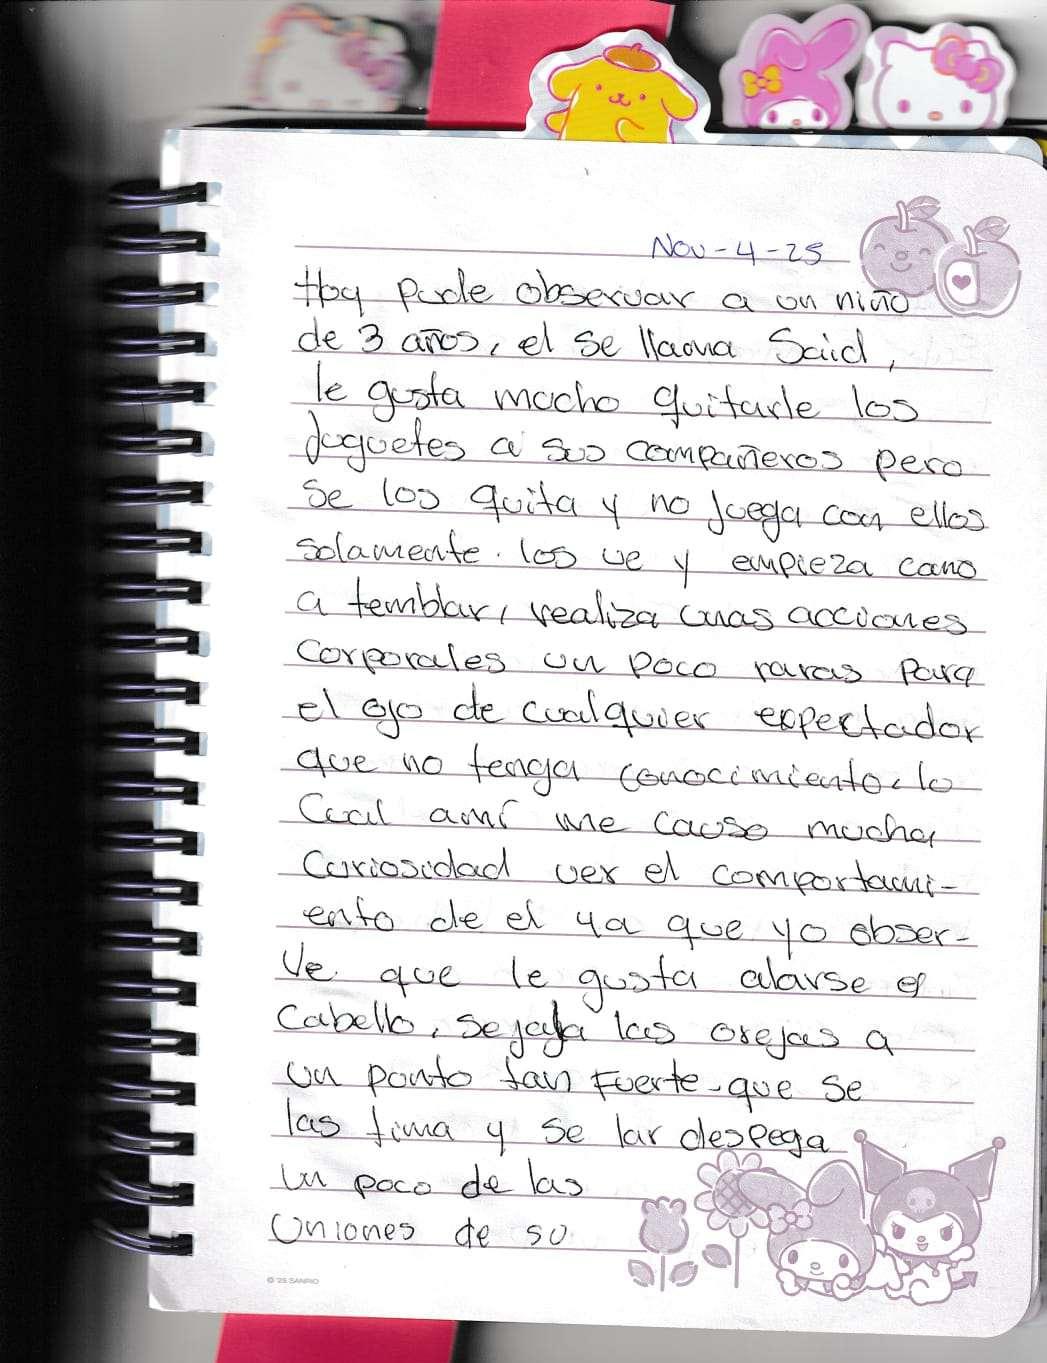 Nov-4-25
Hoy pude observar a un niño
de 3 años, el se llama Said,
le gusta mucho quitarle los
juguetes a sus compañeros pero
se los quita y no juega con ellos
solamente. los ve y empieza como
a temblar, realiza unas acciones
corporales un poco raras para
el ojo de cualquier expectador
que no tenga conocimiento. lo
cual amí me causo mucha
curiosidad ver el comportami-
ento de el ya que yo obser-
ve que le gusta alarse el
cabello, se jala las orejas a
un punto tan fuerte que se
las tima y se lar despega
un poco de las
uniones de su
© '25 SANRIO